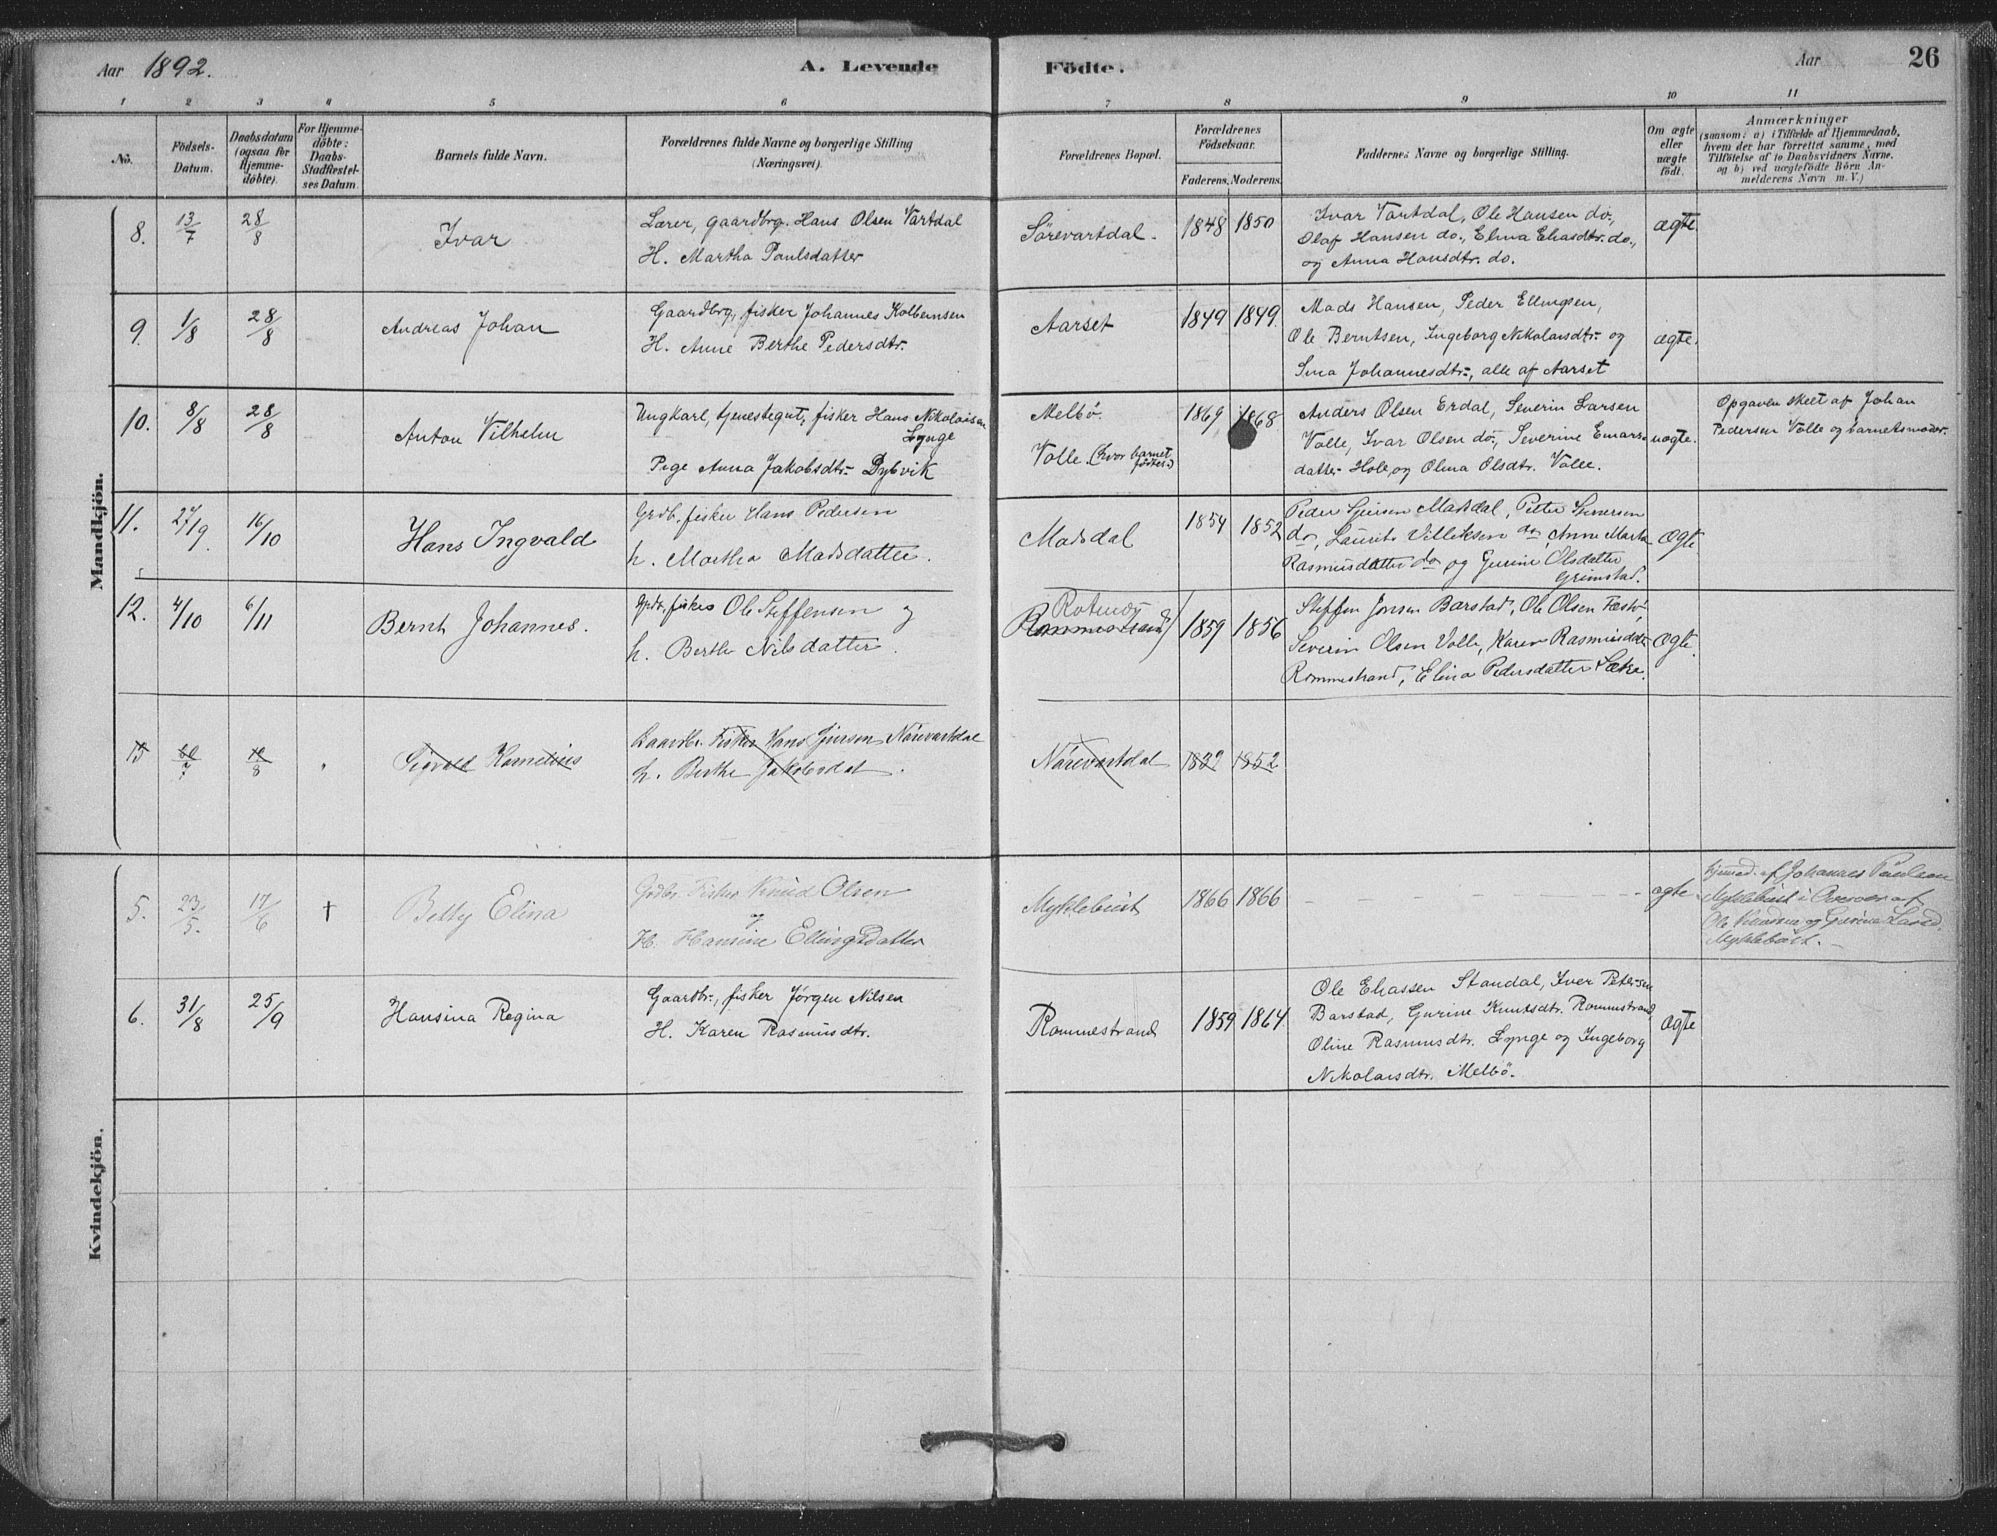 Aar 1892. A. Levende Födte. Aar 26
1 2 3 4 5 6 7 8 9 10 11
No.
Födsels-
Datum.
Daabsdatum
(ogsaa for
Hjemme-
döbte).
For Hjemme-
döbte:
Daabs-
Stadfæstel-
ses Datum.
Barnets fulde Navn.
Forældrenes fulde Navne og borgerlige Stilling
(Næringsvei).
Forældrenes Bopæl.
Forældrenes
Födselsaar.
Faderens. Moderens.
Faddernes Navne og borgerlige Stilling.
Om ægte
eller
uægte
födt.
Anmærkninger
(saasom: a) i Tilfælde af Hjemmedaab,
hvem der har forrettet samme, med
Tilföielse af to Daabsvidners Navne,
og b) ved uægtefödte Börn An-
melderens Navn m. V.)
Mandkjön.
8. 13/7 28/8 Ivar
Lærer, gaardbrg. Hans Olsen Vartdal
H. Martha Paulsdatter
Sörevartdal. 1848 1850
Ivar Vartdal, Ole Hansen do.,
Olaf Hansen do., Elina Eliasdtr. do.,
og Anna Hansdtr. do.
ægte.
9. 1/8 28/8 Andreas Johan
Gaardbrg, fisker Johannes Kolbeinsen
H. Anne Berthe Pedersdtr.
Aarset 1849 1849.
Mads Hansen, Peder Ellingsen,
Ole Berntsen, Ingeborg Nikolaisdtr. og
Sina Johannesdtr., alle af Aarset
ægte.
10. 8/8 28/8 Anton Vilhelm
Ungkarl, tjenestegut, fisker Hans Nikolaisen
Lynge
Pige Anna Jakobsdtr. Dybvik
Melbö.
Volle. (hvor barnet
födtes.)
1869 1868
Anders Olsen Erdal, Severin Larsen
Volle, Ivar Olsen do., Severine
datter Hole, og Olina Olsdtr. Volle.
uægte.
Opgaven skeet af Johan
Pedersen Volle og barnets moder.
11. 27/9. 16/10 Hans Ingvald
Grdb. fisker Hans Pedersen
h. Martha Madsdatter.
Masdal 1854 1852
Peder Masdal, Petter
do, Laurits Villiksen do, Anne Marta
Rasmusdatter do og Gurine Olsdatter
Grimstad.
Ægte
12. 4/10 6/11 Bernt Johannes.
Grdb. fisker Ole Steffensen og
h. Berthe Nilsdatter.
Rommestrand 1859 1856
Steffen Jensen Barstad, Ole Olsen
Severin Olsen Volle, Karen Rasmusdtr
Rommestrand, Elina Pedersdatter Sætre.
Ægte.
13 /7 /8 Sigvald Kornelius
Gaardbr. Fisker Hans Nörevartdal
h. Berthe Jakobsdat.
Nörevartdal 1852
Kvindekjön.
5. 23/5. 17/6 † Betty Elina
Grdbr. Fisker Knud Olsen
og
H. Hansine Ellingsdatter
Myklebust 1866 1866 ægte
Hjemd. af Johannes Paulsen
Myklebust i Overvær af
Ole Knudsen og Gurine
Myklebust.
6. 31/8 25/9 Hansina Regina
Gaardbr., fisker Jörgen Nilsen
H. Karen Rasmusdtr.
Rommestrand 1859 1864
Ole Eliassen Standal, Iver Petersen
Barstad, Gurine Knutsdtr. Rommestrand
Oline Rasmusdtr. Lynge og Ingeborg
Nikolaisdtr. Melbö.
Ægte